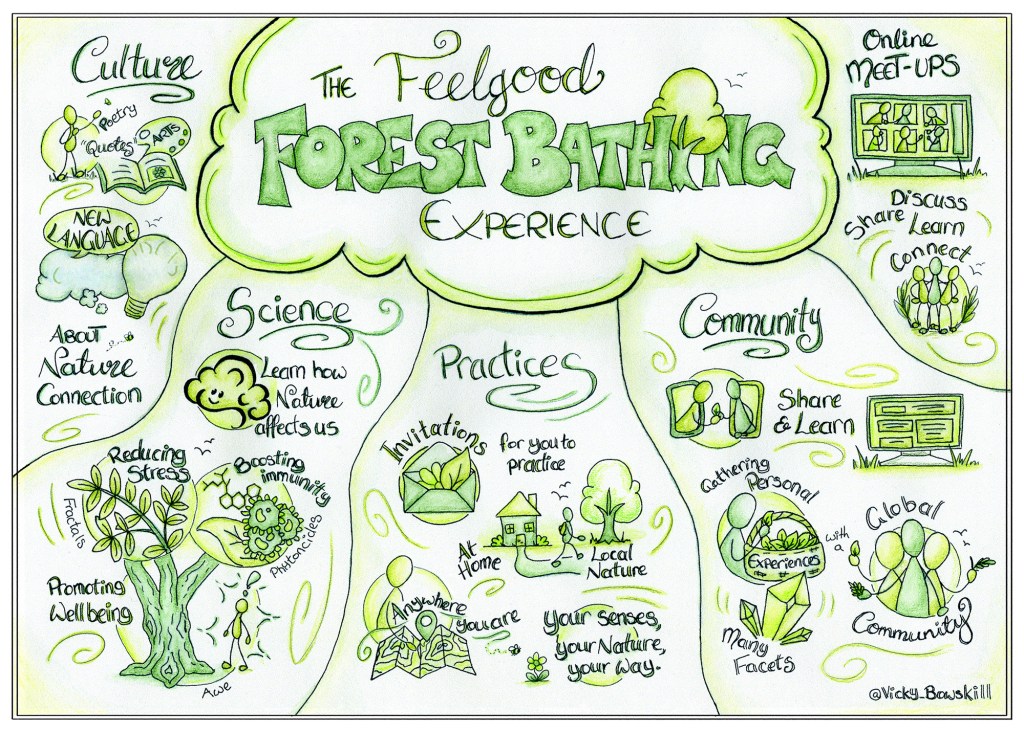 THE Feelgood
FOREST BATHING
EXPERIENCE
Culture
Poetry
"Quotes"
ARTS
NEW
LANGUAGE
ABOUT
Nature
Connection
Science
Learn how
Nature
affects us
Reducing
Stress
Boosting
immunity
Fractals
Phytoncides
Promoting
Wellbeing
Awe
Practices
Invitations
for you to
practice
At
Home
Local
Nature
Anywhere
you are
Your senses,
your Nature,
your way.
Community
Share
& Learn
Gathering
Personal
Experiences
with
a
Global
Community
Many
Facets
Online
MEET-UPS
Discuss
Share Learn
Connect
@Vicky_Bowskill